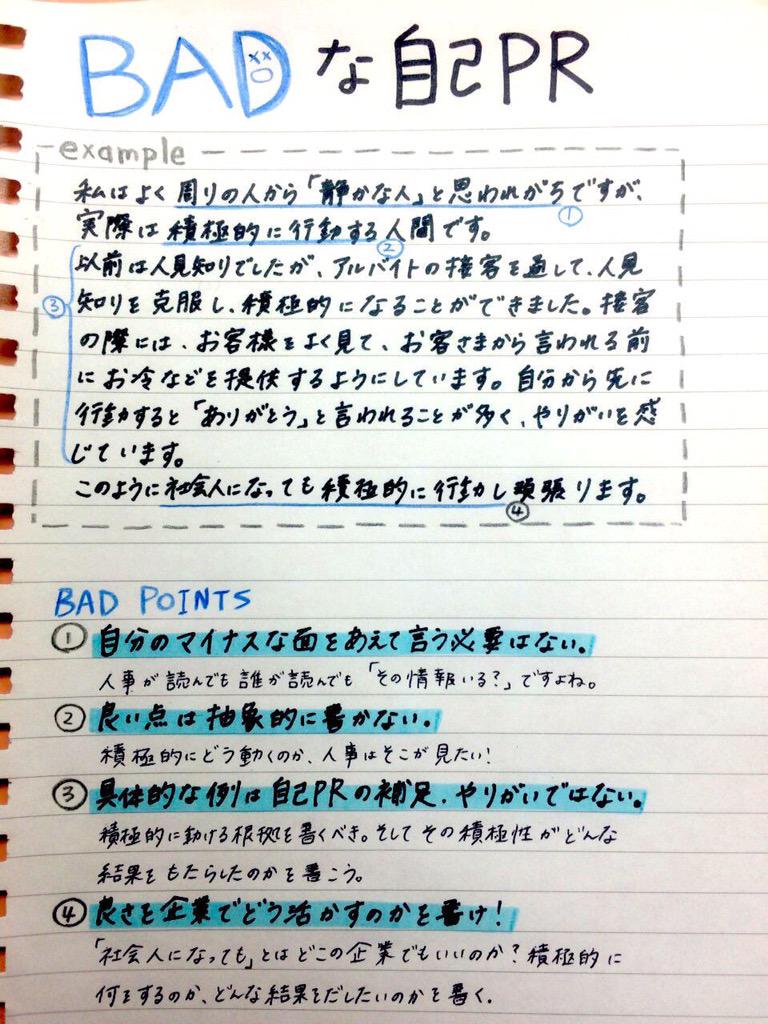 BADな自己PR
example
私はよく周りの人から「静かな人」と思われがちですが、
①
実際は積極的に行動する人間です。
②
③
以前は人見知りでしたが、アルバイトの接客を通して、人見
知りを克服し、積極的になることができました。接客
の際には、お客様をよく見て、お客さまから言われる前
にお冷などを提供するようにしています。自分から先に
行動すると「ありがとう」と言われることが多く、やりがいを感
じています。
このように社会人になっても積極的に行動し頑張ります。
④
BAD POINTS
① 自分のマイナスな面をあえて言う必要はない。
人事が読んでも誰が読んでも「その情報いる?」ですよね。
② 良い点は抽象的に書かない。
積極的にどう動くのか、人事はそこが見たい!
③ 具体的な例は自己PRの補足、やりがいではない。
積極的に動ける根拠を書くべき。そしてその積極性がどんな
結果をもたらしたのかを書こう。
④ 良さを企業でどう活かすのかを書け!
「社会人になっても」とはどこの企業でもいいのか?積極的に
何をするのか、どんな結果をだしたいのかを書く。